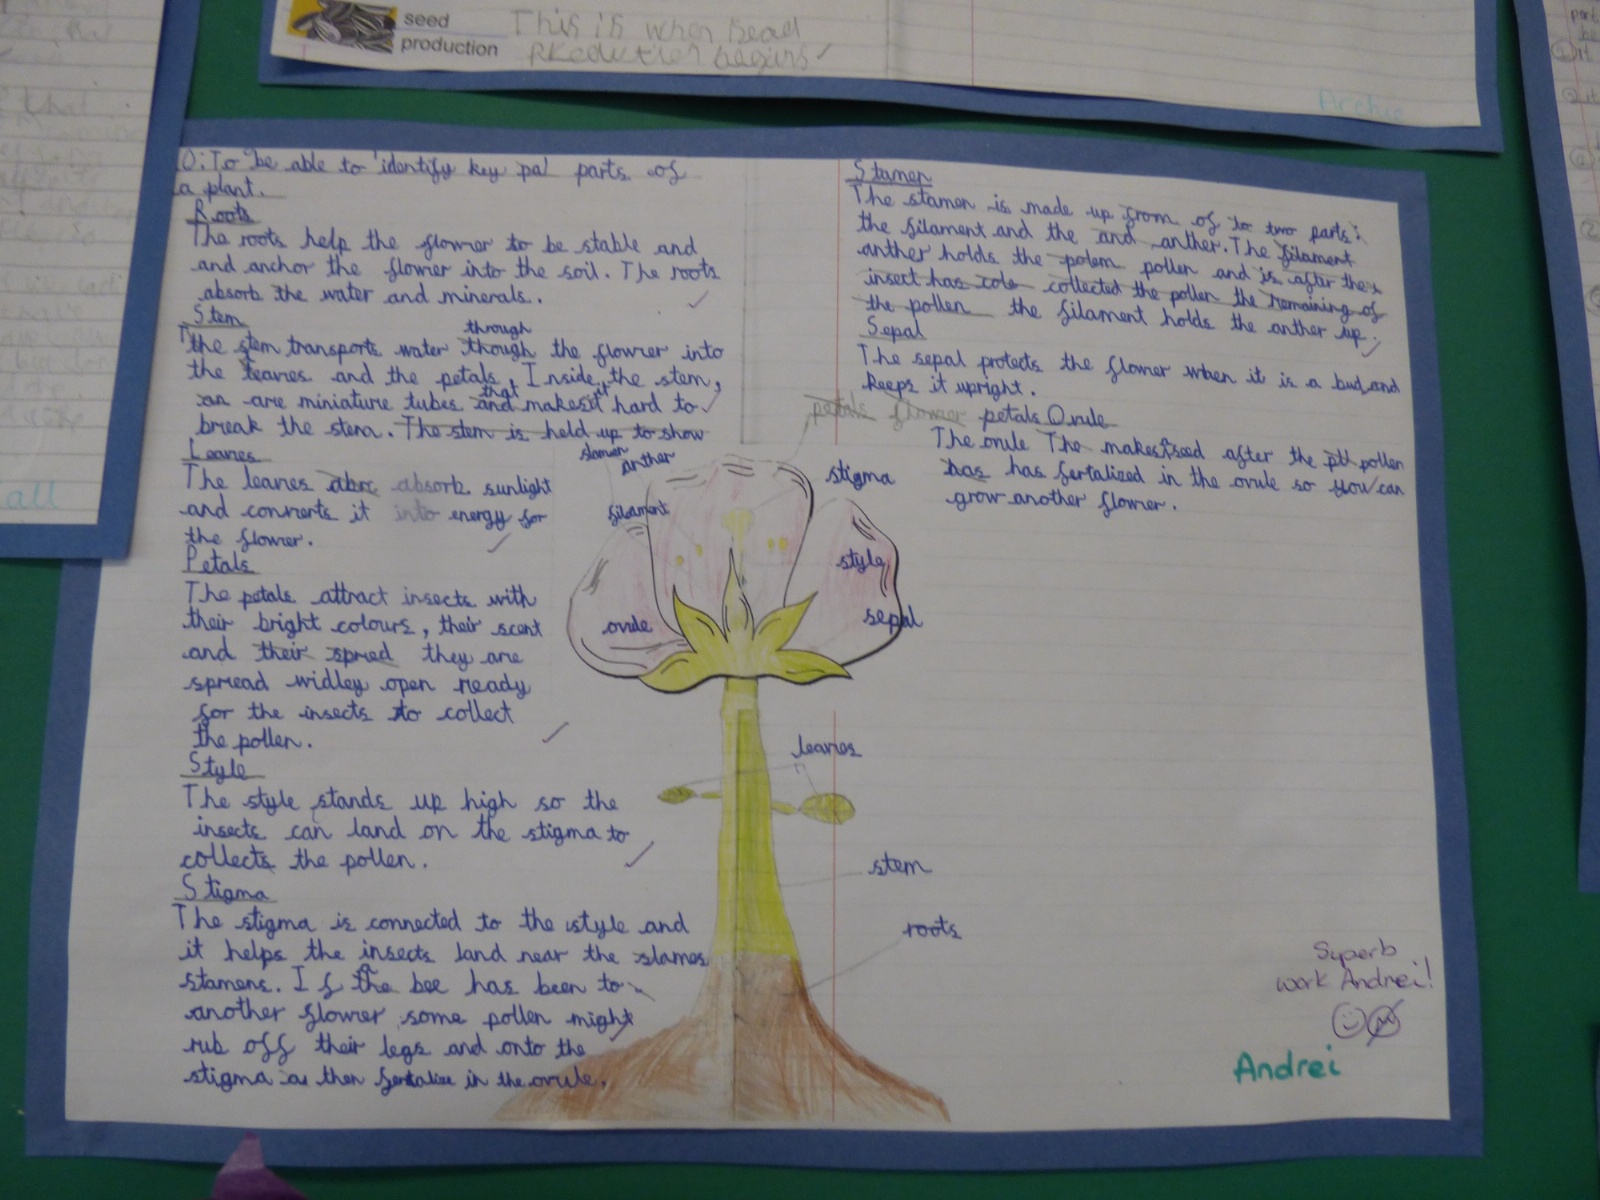 seed
production
This is when
begins
Archie
all
O: To be able to identify key pal parts of
a plant.
Roots
The roots help the flower to be stable and
and anchor the flower into the soil. The roots
absorb the water and minerals.
Stem
through
the stem transports water though the flower into
the leaves and the petals. Inside the stem,
that it
an are miniature tubes and makes it hard to
break the stem. The stem is held up to show
Leaves
The leaves abrc absorb sunlight
and converts it into energy for
the flower.
Petals
The petals attract insects with
their bright colours, their scent
and their spread they are
spread widley open ready
for the insects to collect
the pollen.
Style
The style stands up high so the
insects can land on the stigma to
collects the pollen.
Stigma
The stigma is connected to the style and
it helps the insects land near the stames
stamens. If the bee has been to
another flower some pollen might
rub off their legs and onto the
stigma as then fertalise in the ovule.
Stamen
The stamen is made up from of to two parts:
the filament and the and anther. The filament
anther holds the polem pollen and is after the
insect has cole collected the pollen the remaining of
the pollen the filament holds the anther up.
Sepal
The sepal protects the flower when it is a bud and
keeps it upright.
petals flower petals Ovule
The ovule The makes seed after the pll pollen
has has fertalized in the ovule so you can
grow another flower.
stamen
anther
stigma
filament
style
ovule
sepal
leaves
stem
roots
Superb
work Andrei!
Andrei